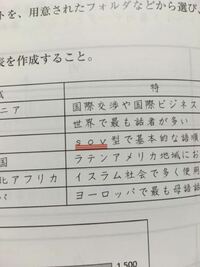 トを、用意されたフォルダなどから選び、
表を作成すること。
特
ニア 国際交渉や国際ビジネス
世界で最も話者が多い
ｓｏｖ型で基本的な語順
国 ラテンアメリカ地域にお
北アフリカ イスラム社会で多く使用
ヨーロッパで最も母語話
1,500